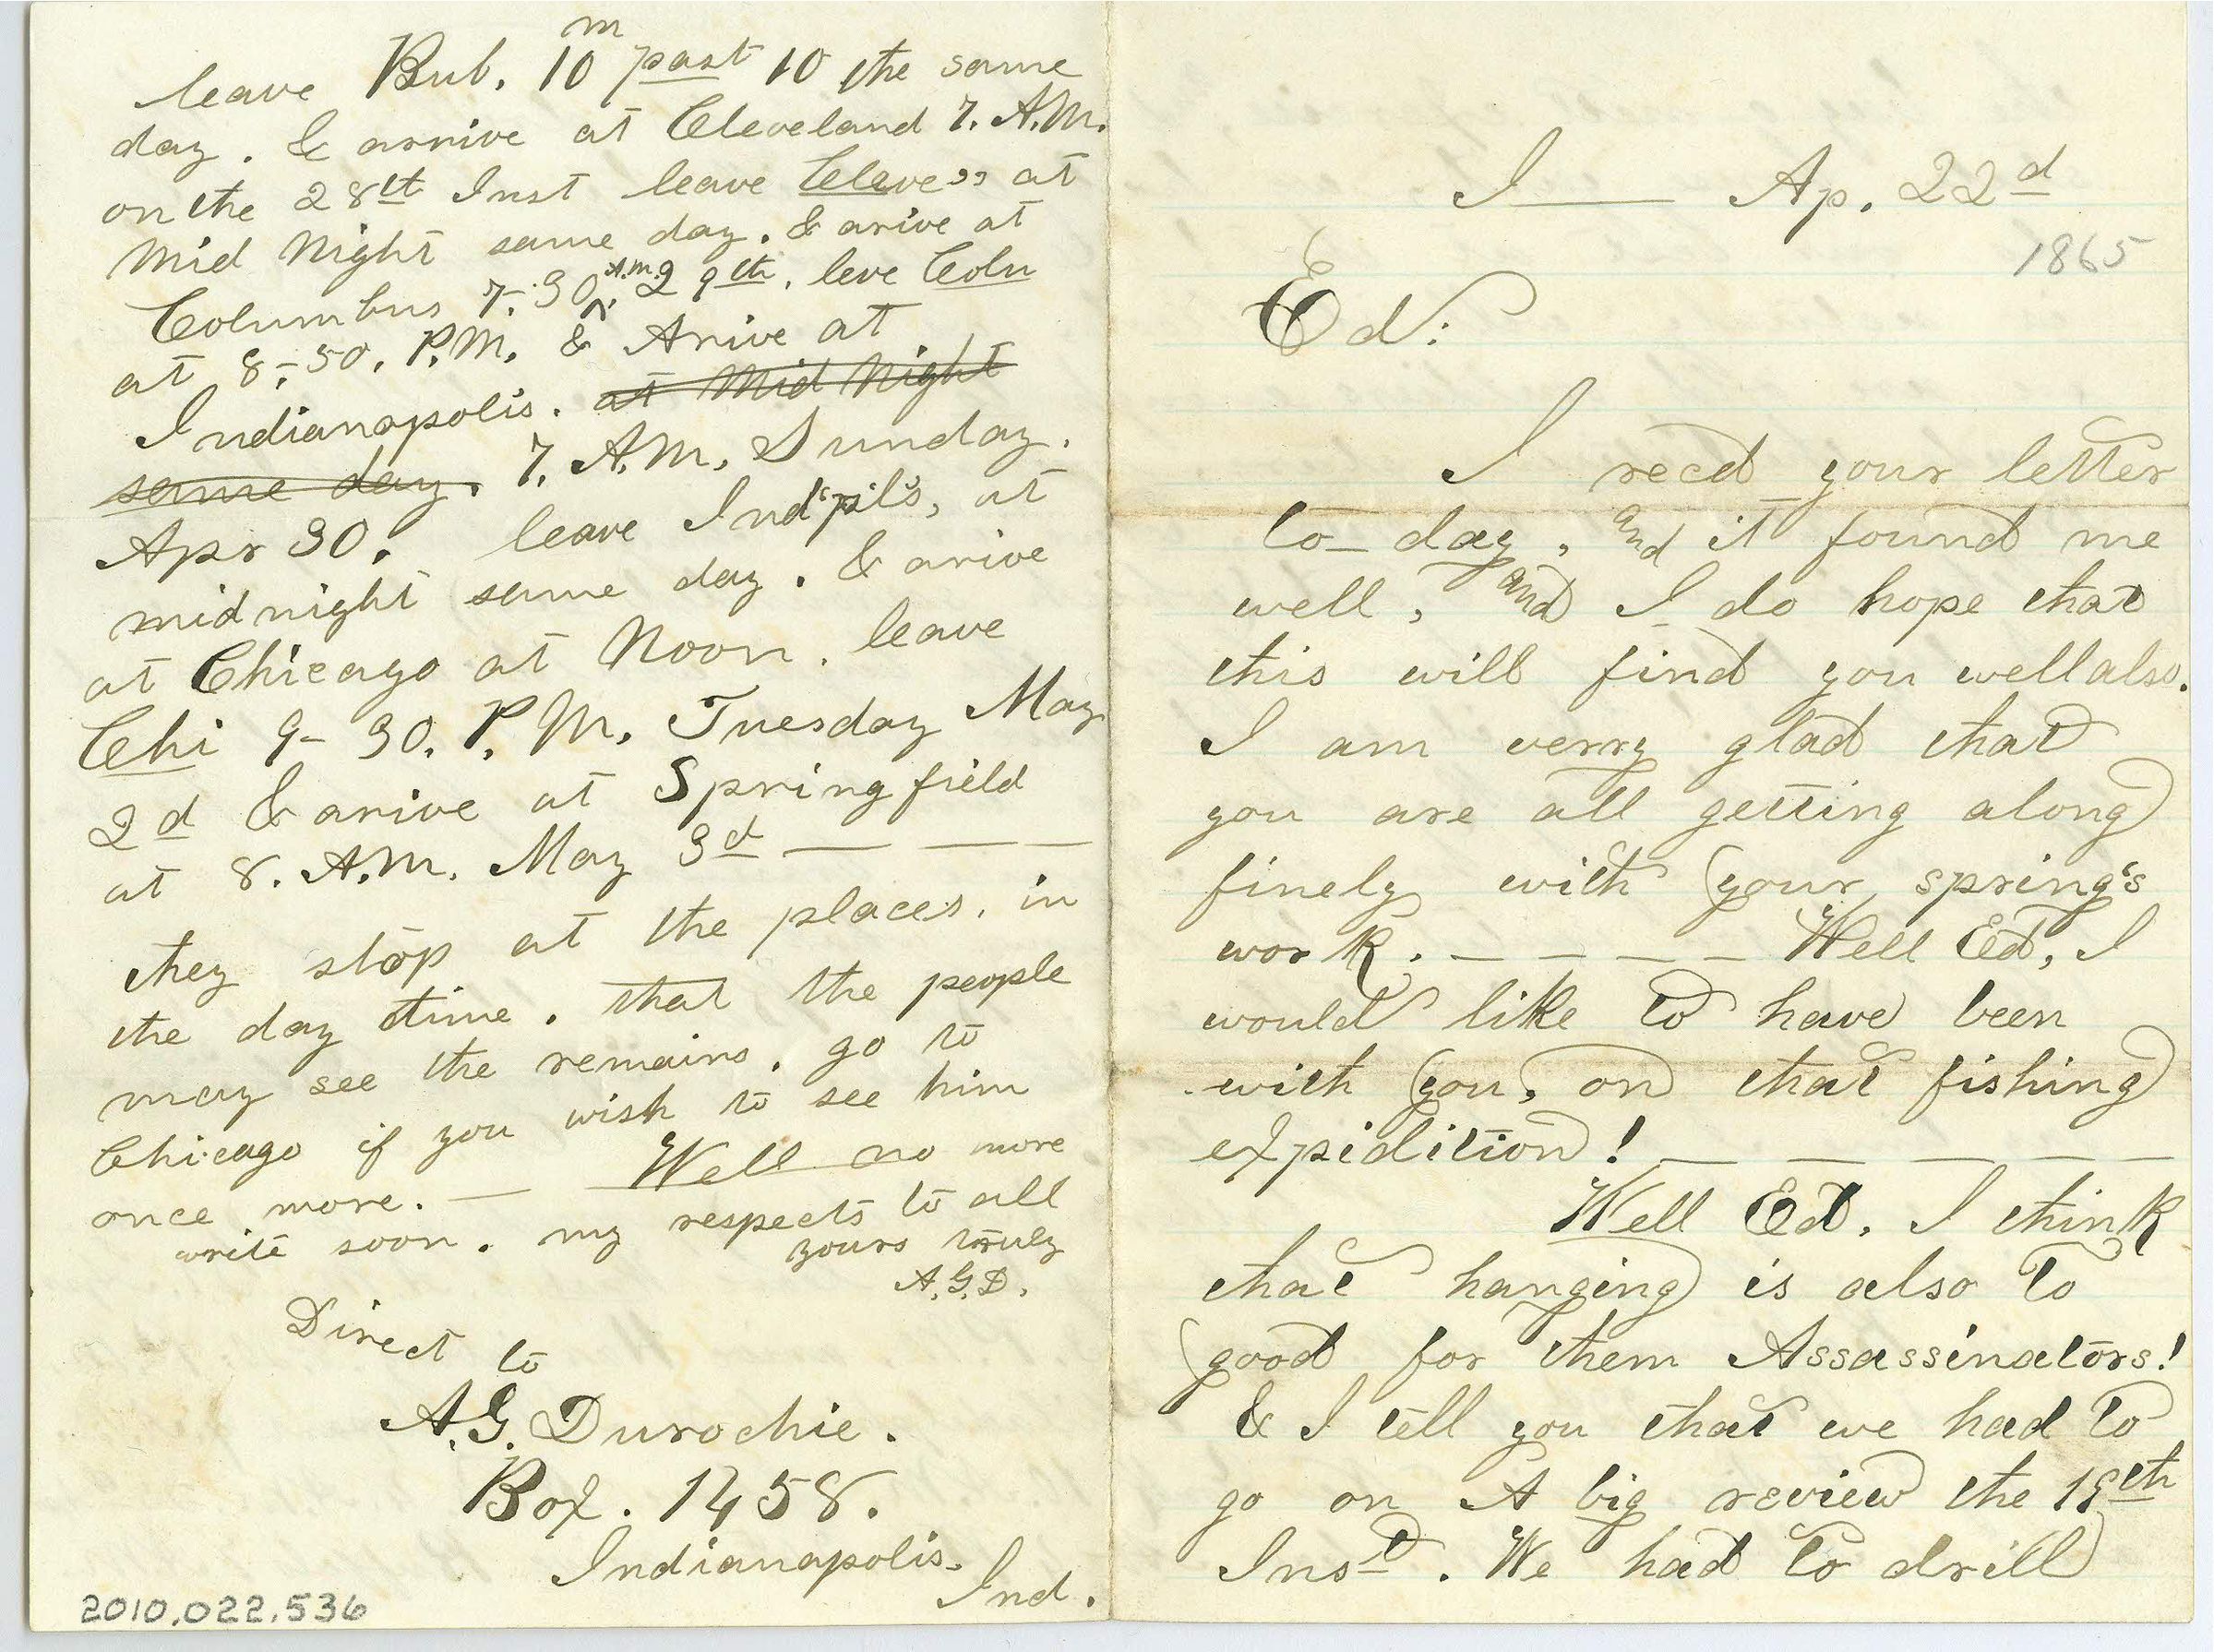 leave Bub. 10 m past 10 the same
day. & arrive at Cleveland 7. A.M.
on the 28th Inst leave Cleve" at
Mid Night same day. & arive at
Columbus 7-30, A.M. 29th. leve Colu
at 8-50. P.M. & Arive at
Indianapolis. at Mid Night
same day. 7. A.M. Sunday.
Apr 30. leave Ind'pil's, at
midnight same day. & arive
at Chicago at Noon. leave
Chi 9-30. P.M. Tuesday May
2d & arive at Springfield
at 8. A.M. May 3d — — —
they stop at the places. in
the day time. that the people
may see the remains. go to
Chicago if you wish to see him
once more. — Well no more
write soon. my respects to all
yours truly
A.G.D.
Direct to
A.G. Durochie.
Box. 1458.
Indianapolis.
Ind.
2010.022.536
I—— Ap. 22d
1865
Ed:
I recd your letter
to-day, and it found me
well, and I do hope that
this will find you well also.
I am verry glad that
you are all getting along
finely with your spring's
work. — — — — Well Ed, I
would like to have been
with you, on that fishing
expidition! — — — — —
Well Ed. I think
that hanging is also to
good for them Assassinators!
& I tell you that we had to
go on A big review the 19th
Inst. We had to drill